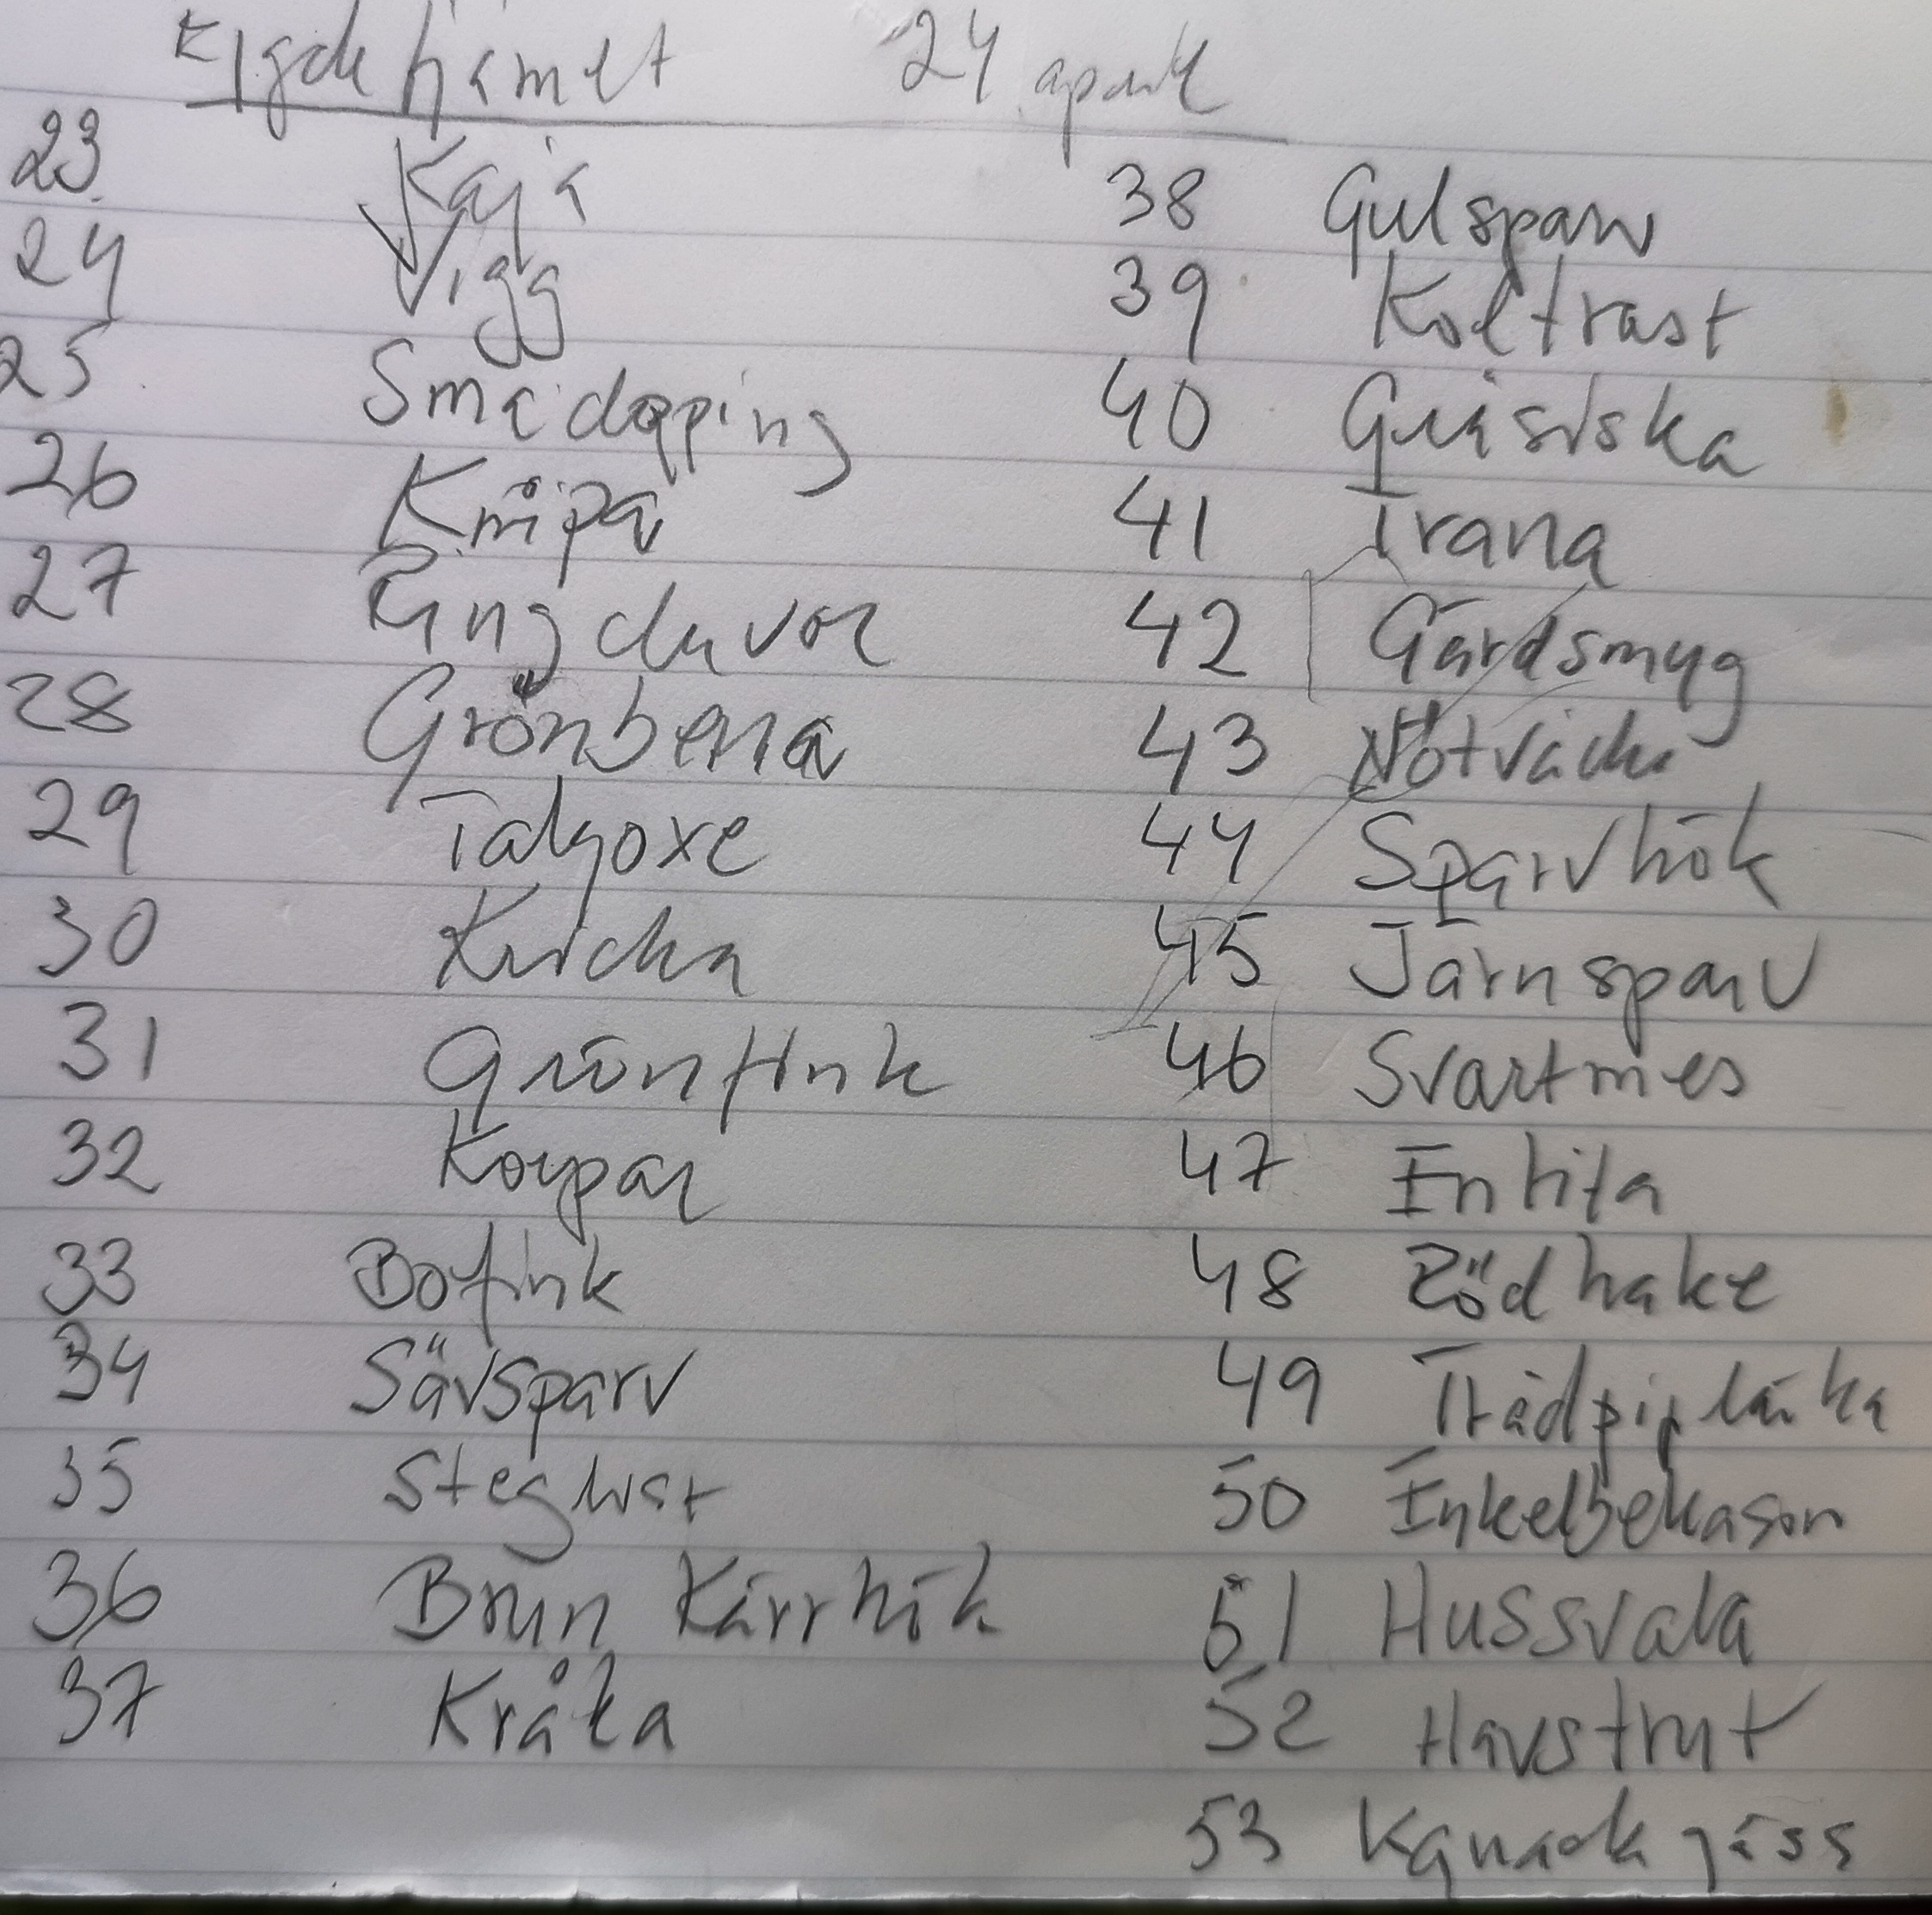 24 april
23 Kaja
24 Vigg
25 Smådopping
26 Knipa
27 Ringduvor
28 Grönbena
29 Talgoxe
30 Kricka
31 Grönfink
32 Korpar
33 Bofink
34 Sävsparv
35 Steglist
36 Brun Kärrhök
37 Kråka
38 Gulsparv
39 Koltrast
40 Gråsiska
41 Trana
42 Gärdsmyg
43 Nötväcka
44 Sparvhök
45 Järnsparv
46 Svartmes
47 Entita
48 Rödhake
49 Trädpiplärka
50 Enkelbekasin
51 Hussvala
52 Havstrut
53 Kanadagäss